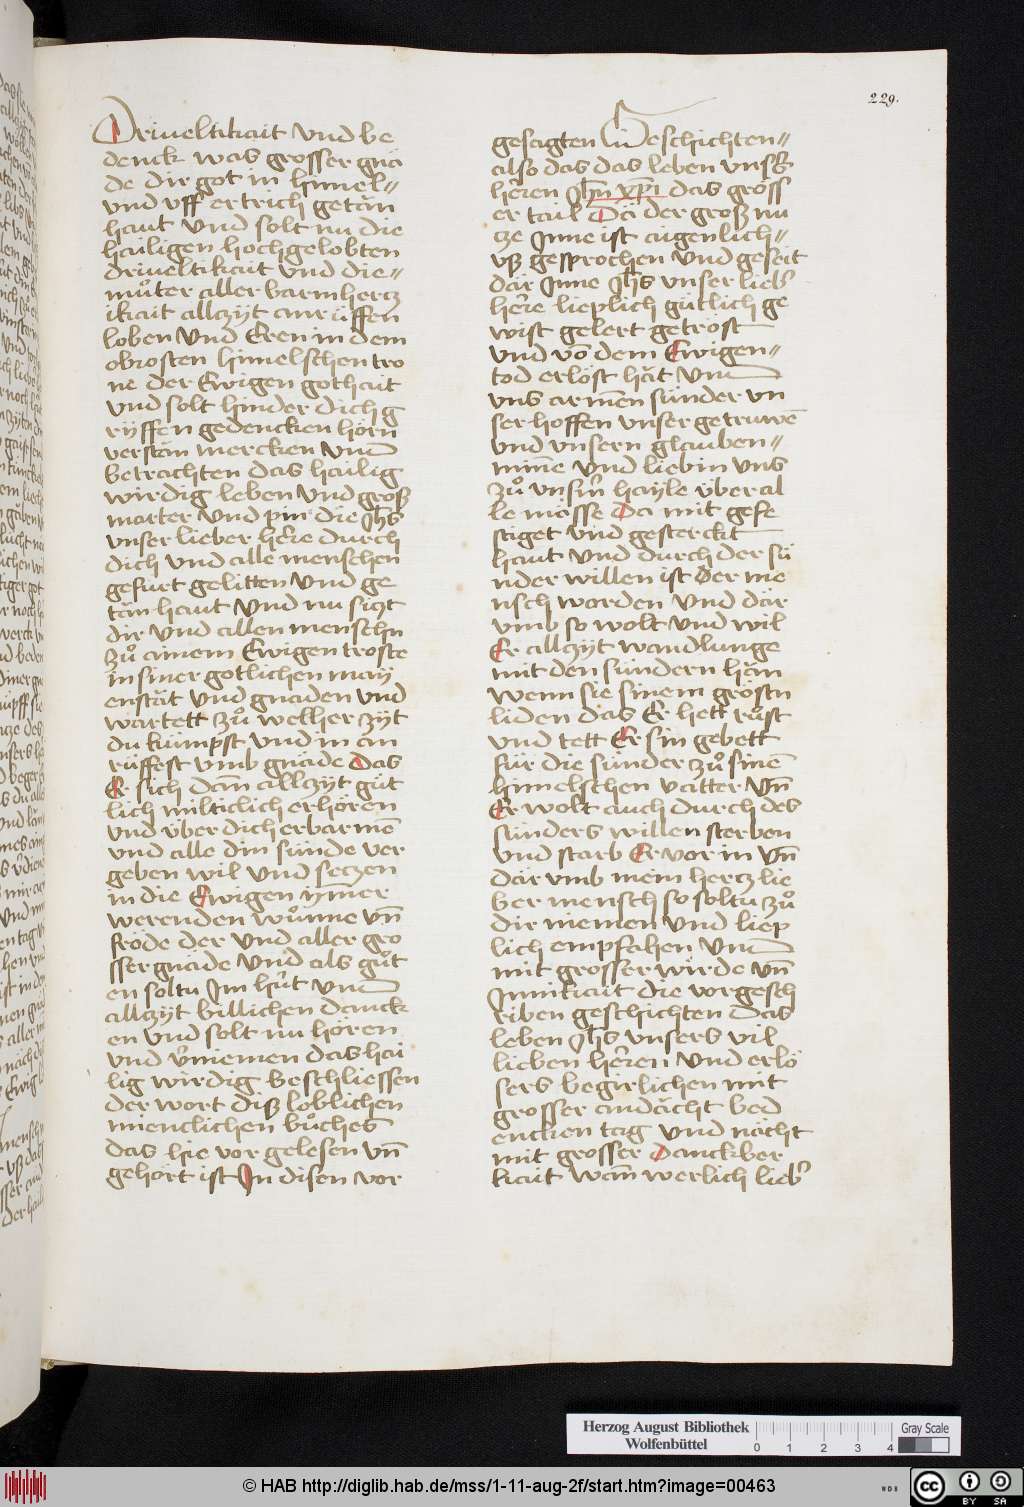 229.
Driueltikait vnd be
denck was grosser gnā
de dir got in himel=
vnd vff ertrich getăn
haut vnd solt nu die
hailigen hochgelobten
driueltikait vnd die=
mu̇ter aller barmhercz
ikait allczyt anrüffen
loben vnd Eren in dem
obrosten himelschen tro
ne der Ewigen gothait
vnd solt hinder dich g
ryffen gedencken hörn
verstăn mercken vnd
betrachten das hailig
wirdig leben vnd groß
marter vnd pin die Jhs̄
vnser lieber here durch
dich vnd alle menschen
gefurt gelitten vnd ge
tăn haut vnd nu sigt
dir vnd allen menschn
zů ainem Ewigen troste
in siner gotlichen may
enstăt vnd gnaden vnd
wartett zů welher zyt
du kümpst vnd in an
rüffest vmb gnade das
Er sich dan̄ allczyt gůt
lich milticlich erhören
vnd über dich erbarmē
vnd alle din sünde ver
geben wil vnd seczen
in die Ewigen ym̄er
werenden wůnne vn̄
fröde der vnd aller gro
sser gnăde vnd als gůt
en soltu Jm hůt vnd
allczyt billichen danck
en vnd solt nu hören
vnd v̓niemen das hai
lig wirdig beschliessen
der wort diß loblichen
mienclichen bůches
das hie vor gelesen vn̄
gehört ist Jn disen vor
gesagten Geschichten=
also das das leben vnsß
heren Jhm̄ xp̄i das gröss
er tail Da der groß nu
cze Jnne ist augenlich=
vß gesprochen vnd geseit
dar Jnne Jhs̄ vnser lieb̓
here lieplich gütlich ge
wist gelert getröst
vnd vō dem Ewigen=
tod erlöst hăt vnd
vns armen sünder vn
ser hoffen vnser getruwē
vnd vnsern glauben=
min̄e vnd lieb in vns
zů vnsm̓ hayle über al
le măsse Da mit gefe
stiget vnd gesterckt
haut vnd durch der sü
nder willen ist Der me
nsch worden vnd dar
vmb so wolt vnd wil
Er allczyt wandlunge
mit den sündern hăn
wenn sie sinem gröstn
liden das Er hett růst
vnd tett Er sin gebett
für die sünder zů sinē
himelschen vatter vn̄
Er wolt auch durch des
sünders willen sterben
vnd starb Er vor in vn̄
dar vmb mein hercz lie
ber mensch so soltu zů
dir niemen vnd liep
lich empfahen vnd
mit grosser wirde vn̄
Jnnikait die vorgesch
riben geschichten das
leben Jhs̄ vnsers vil
lieben heren vnd erlö
sers begirlichen mit
grosser andăcht bed
encken tag vnd nacht
mit grosser Danckber
kait wan̄ werlich lieb̓
Herzog August Bibliothek
Wolfenbüttel
0 1 2 3 4
Gray Scale
© HAB http://diglib.hab.de/mss/1-11-aug-2f/start.htm?image=00463
WDB
cc BY SA